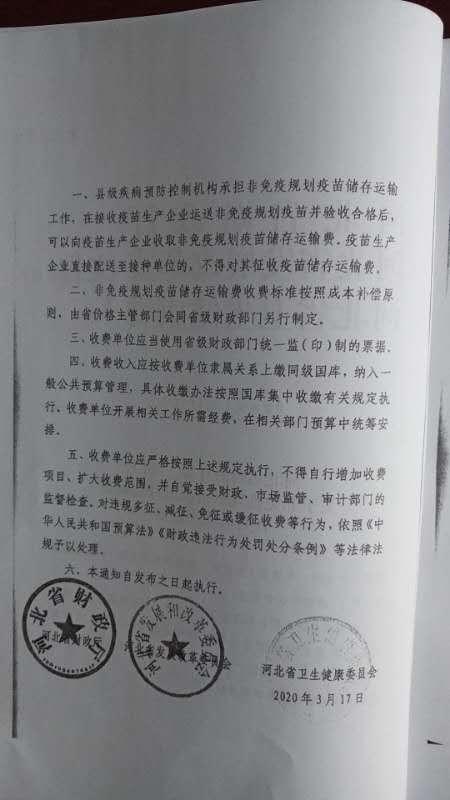 一、县级疾病预防控制机构承担非免疫规划疫苗储存运输
工作，在接收疫苗生产企业运送非免疫规划疫苗并验收合格后，
可以向疫苗生产企业收取非免疫规划疫苗储存运输费。疫苗生产
企业直接配送至接种单位的，不得对其征收疫苗储存运输费。
二、非免疫规划疫苗储存运输费收费标准按照成本补偿原
则，由省价格主管部门会同省级财政部门另行制定。
三、收费单位应当使用省级财政部门统一监（印）制的票据。
四、收费收入应按收费单位隶属关系上缴同级国库，纳入一
般公共预算管理，具体收缴办法按照国库集中收缴有关规定执
行。收费单位开展相关工作所需经费，在相关部门预算中统筹安
排。
五、收费单位应严格按照上述规定执行，不得自行增加收费
项目、扩大收费范围，并自觉接受财政、市场监管、审计部门的
监督检查。对违规多征、减征、免征或缓征收费等行为，依照《中
华人民共和国预算法》《财政违法行为处罚处分条例》等法律法
规予以处理。
六、本通知自发布之日起执行。
河北省财政厅
河北省财政厅
河北省发展和改革委员会
河北省卫生健康委员会
2020年3月17日